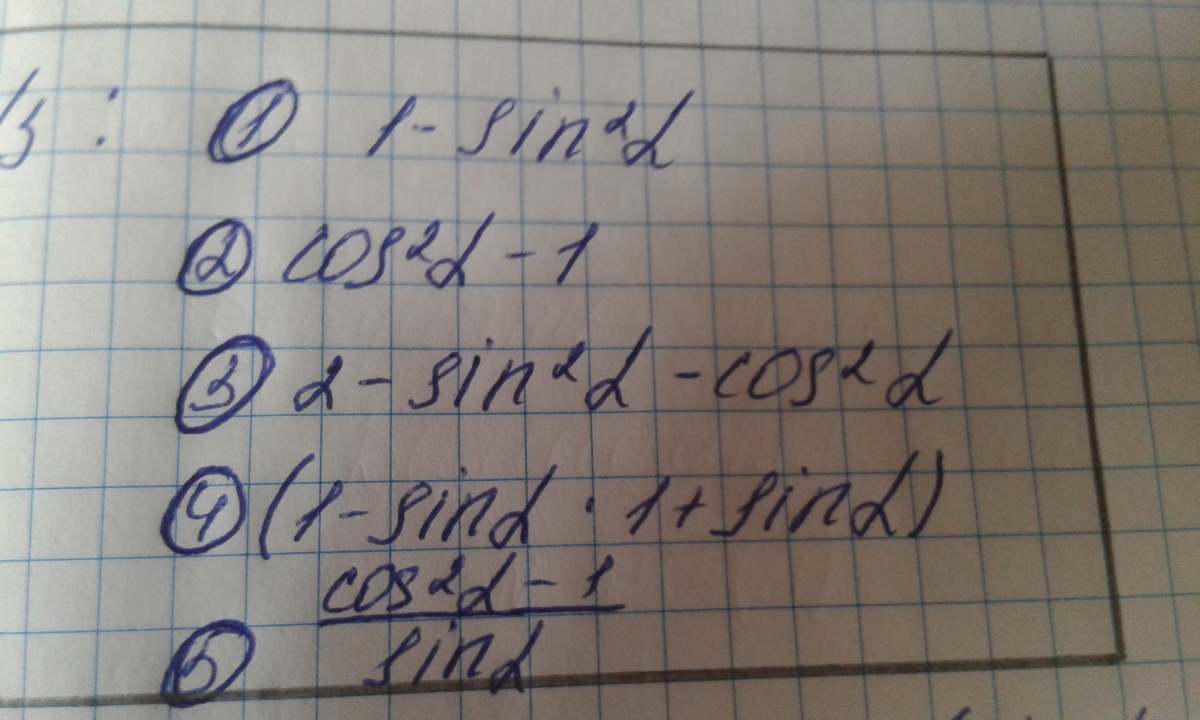 /з : ① 1 - sin²α
② cos²α - 1
③ 2 - sin²α - cos²α
④ (1 - sinα · 1 + sinα)
cos²α - 1
⑤ sinα